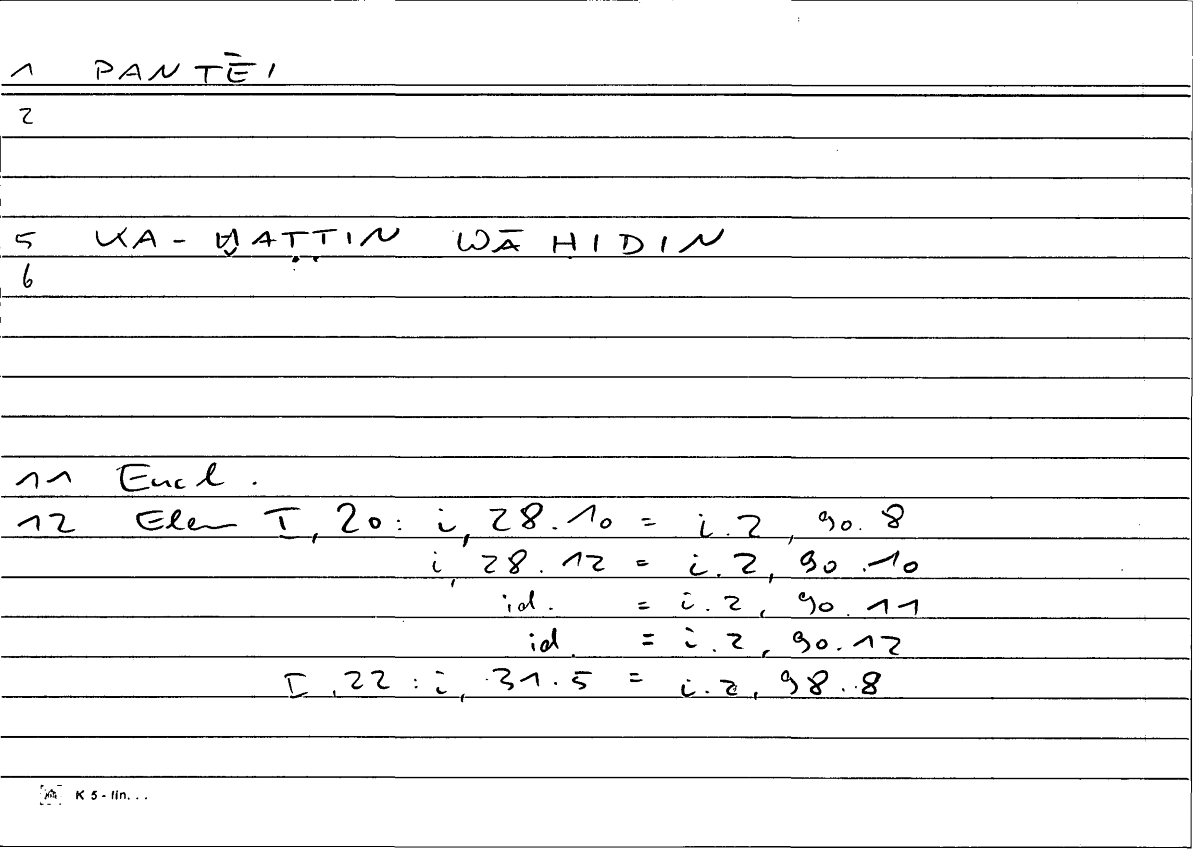 1 PANTĒI
2
5 KA-ḪAṬṬIN WĀḤIDIN
6
11 Eucl.
12 Elem I, 20: i, 28.10 = i.2, 90.8
i, 28.12 = i.2, 90.10
id. = i.2, 90.11
id. = i.2, 90.12
I, 22: i, 31.5 = i.2, 98.8
K 5 - lin...